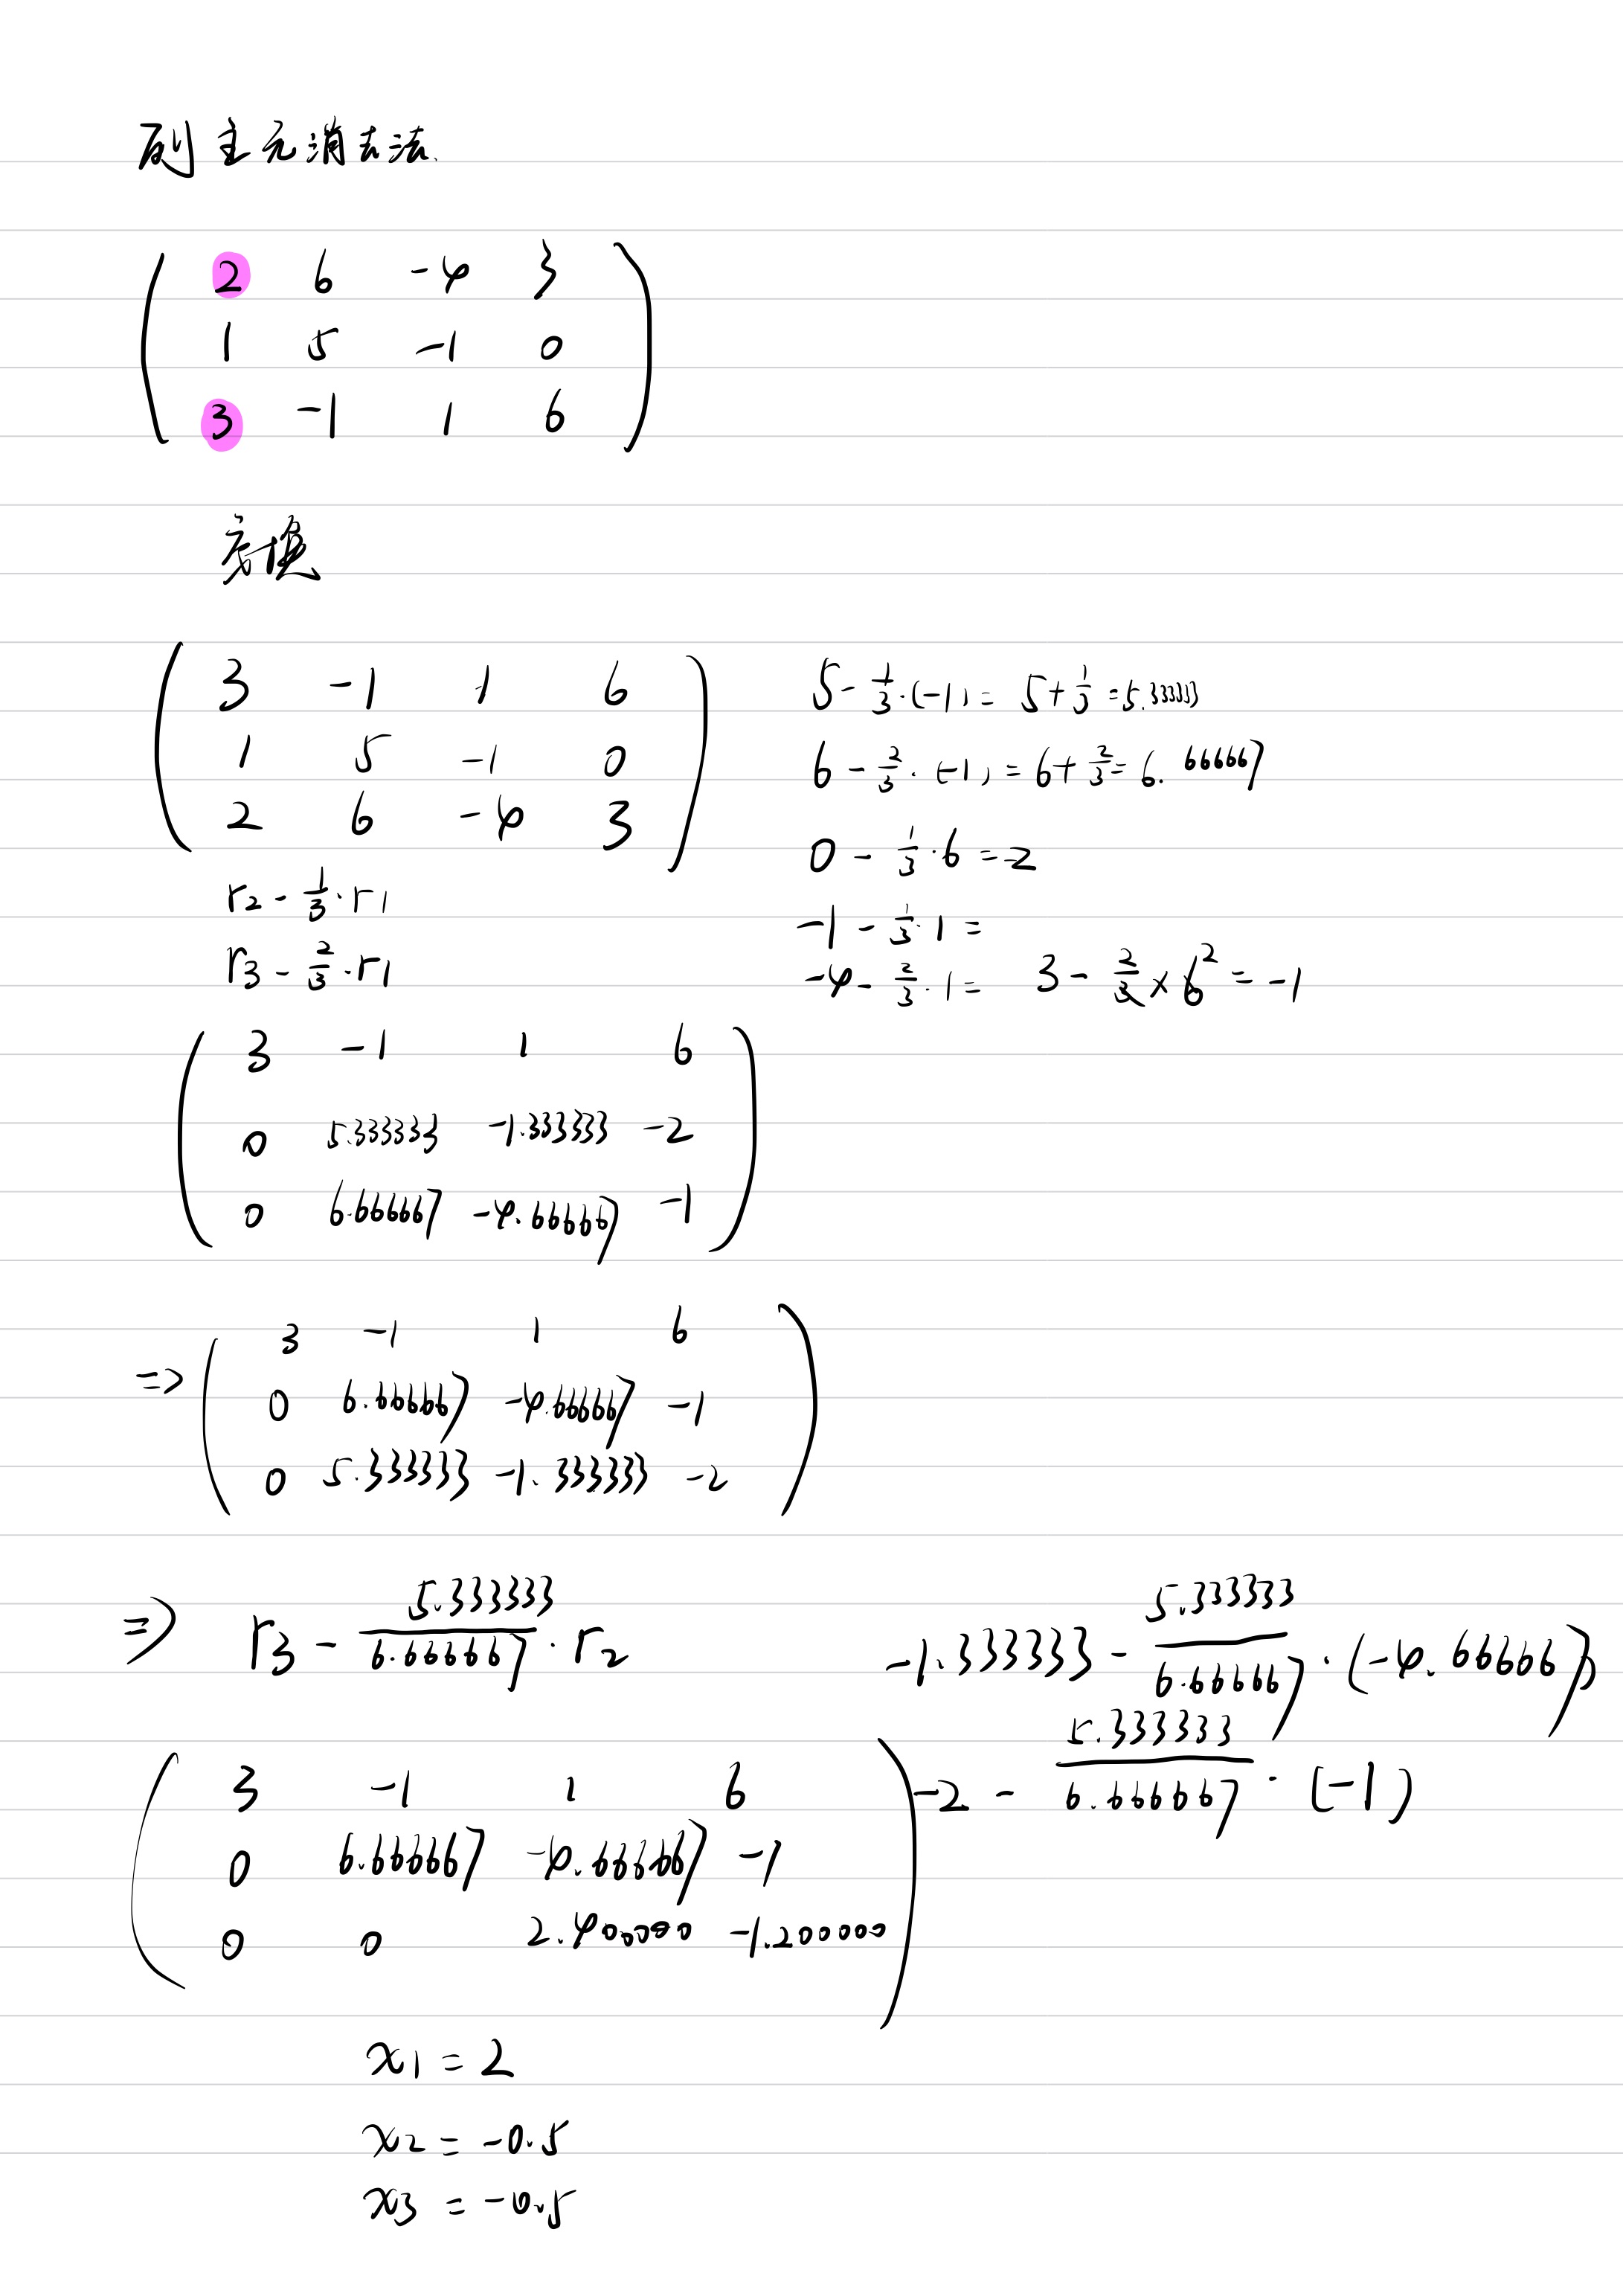 列主元消去法
2 6 -4 3
1 5 -1 0
3 -1 1 6
交换
3 -1 1 6
1 5 -1 0
2 6 -4 3
r2 - 1/3 · r1
r3 - 2/3 · r1
5 - 1/3 · (-1) = 5 + 1/3 = 5.33333
6 - 2/3 · (-1) = 6 + 2/3 = 6.666667
0 - 1/3 · 6 = -2
-1 - 1/3 · 1 =
-4 - 2/3 · 1 = 3 - 2/3 × 6 2 = -1
3 -1 1 6
0 5.333333 -1.333333 -2
0 6.666667 -4.666667 -1
=> 3 -1 1 6
0 6.666667 -4.666667 -1
0 5.333333 -1.333333 -2
=> r3 - 5.333333/6.666667 · r2
-1.333333 - 5.333333/6.666667 · (-4.666667)
-2 - 5.333333/6.666667 · (-1)
3 -1 1 6
0 6.666667 -4.666667 -1
0 0 2.400000 -1.200000
x1 = 2
x2 = -0.5
x3 = -0.5